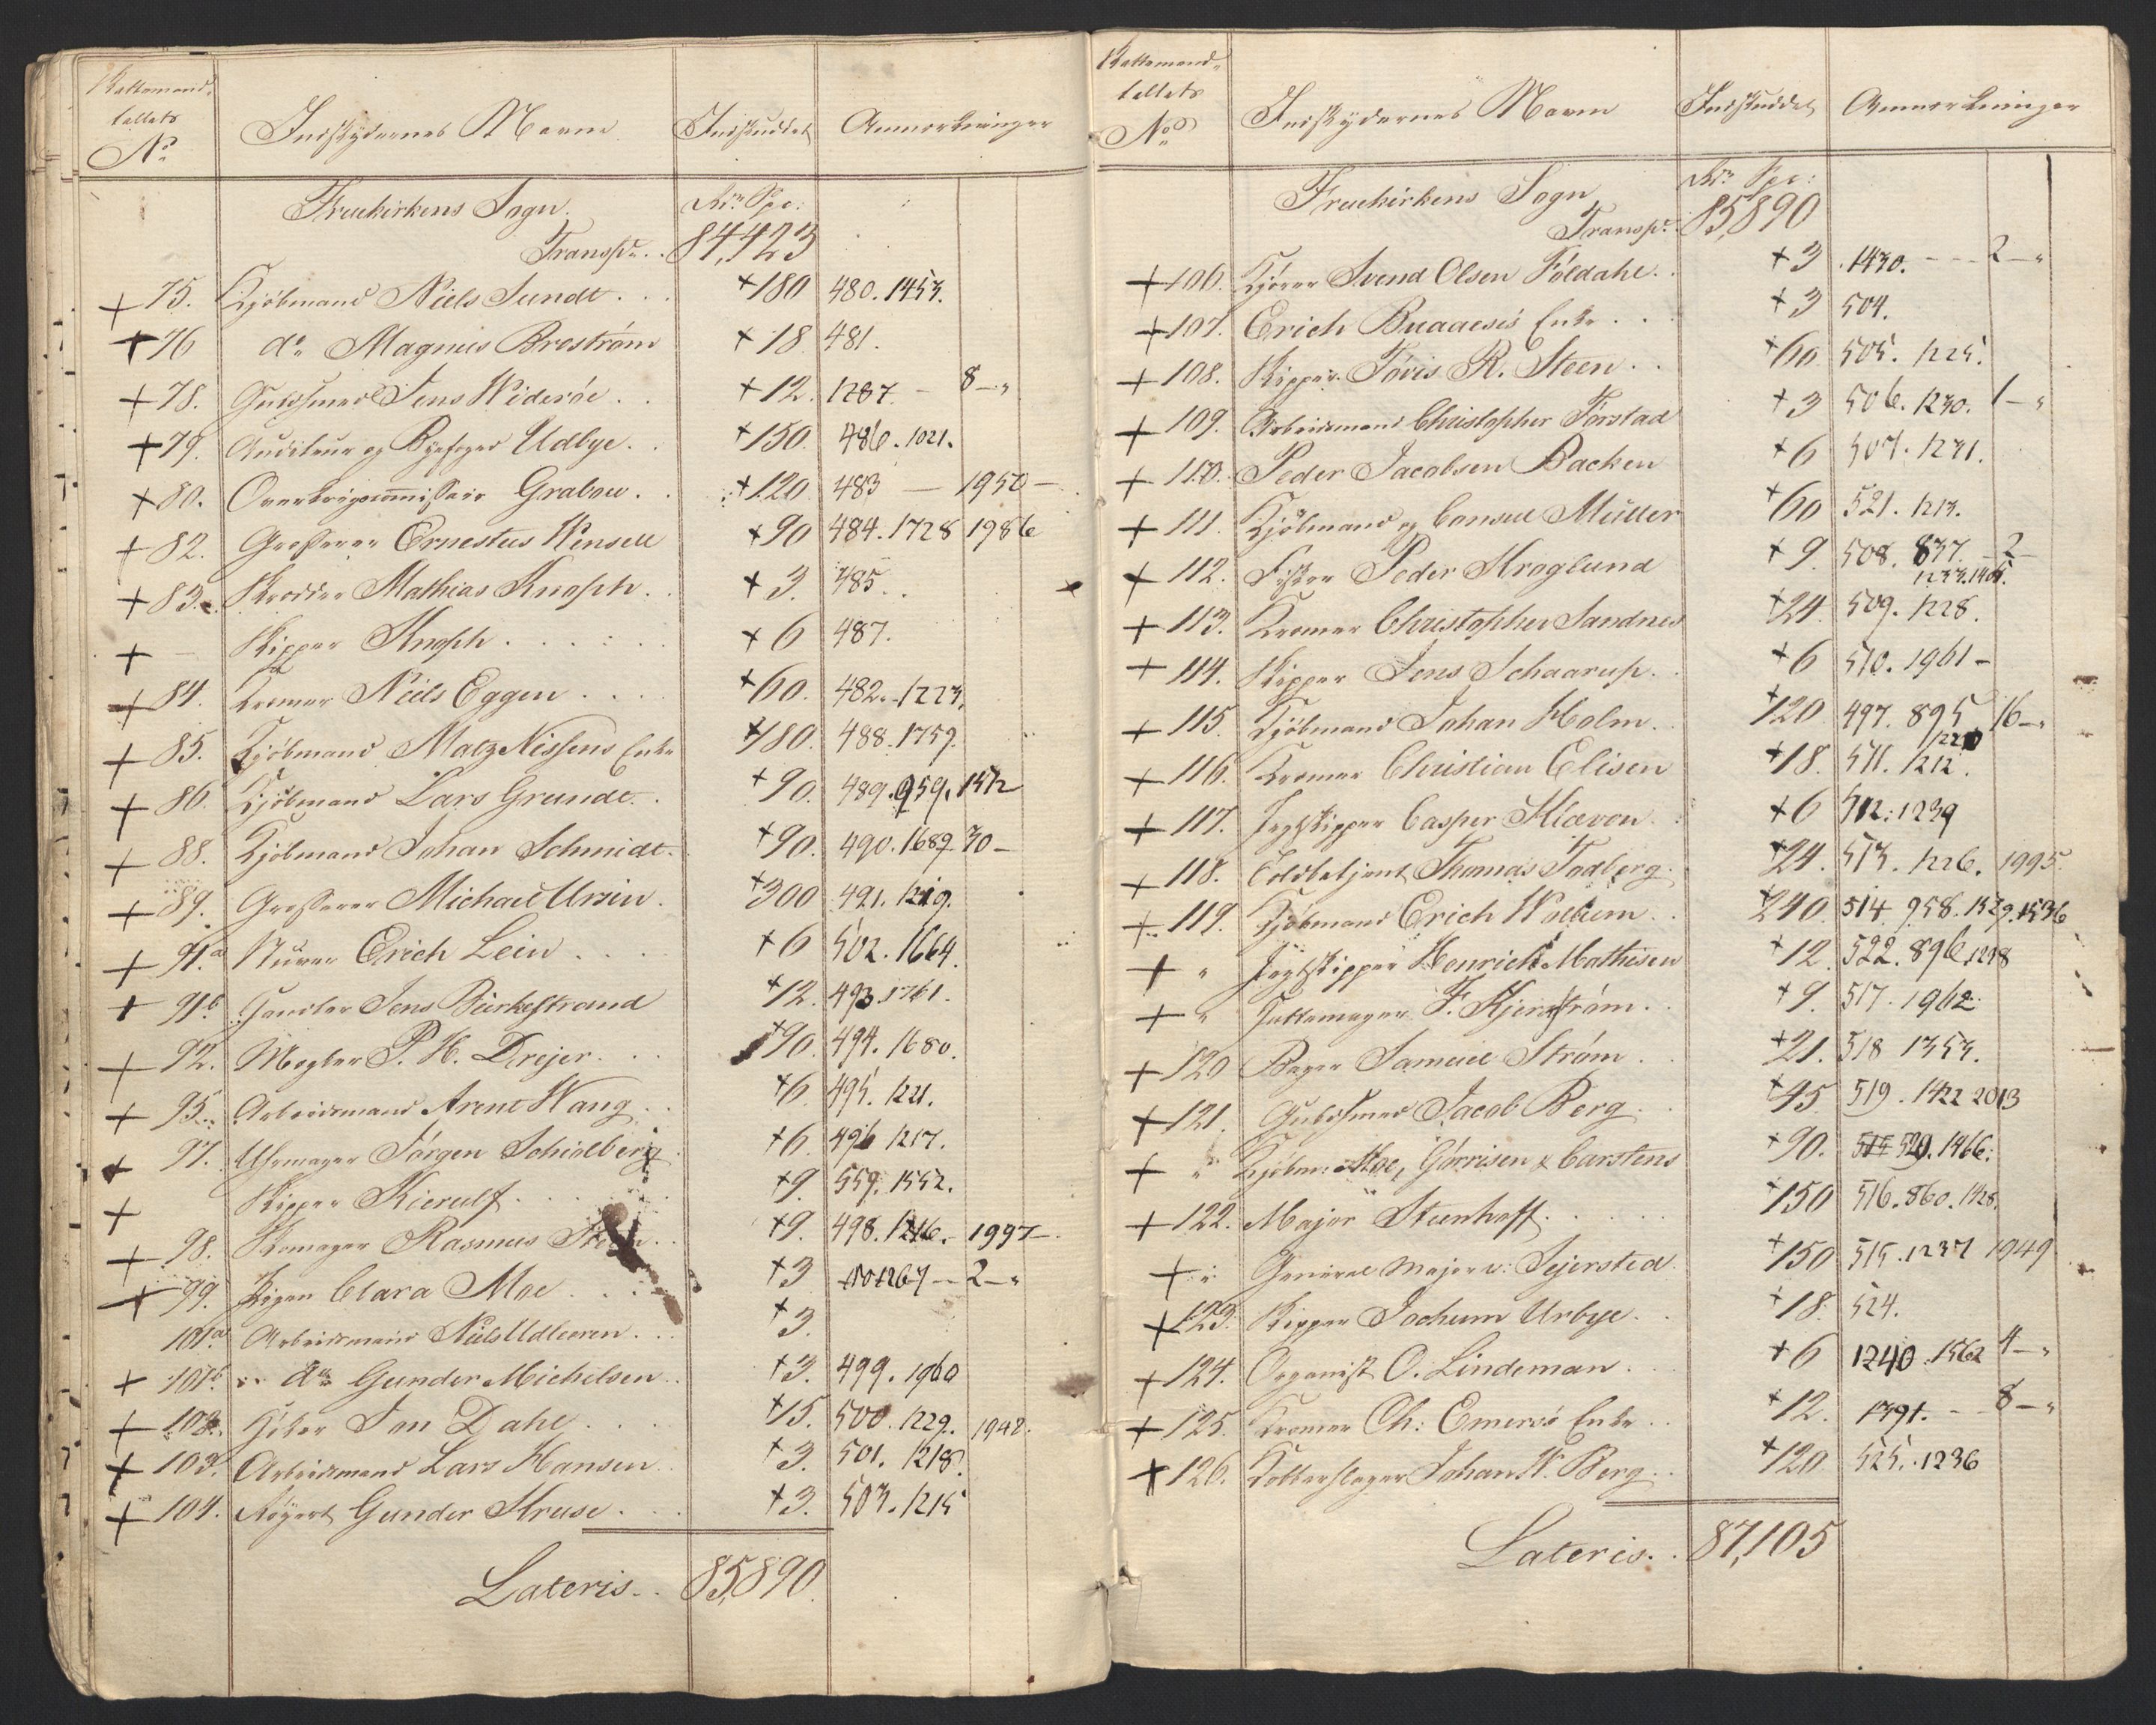 Mattemand-
tallets
No
Indskydernes Navne
Indskuddet
Anmærkninger
Fruekirkens Sogn.
Rd. Spe:
Transpt. . 84,423
+ 75. Kjöbmand Niels Sundt . . +180 480. 1453.
+ 76 do Magnus Broström +18 481.
+ 78. Guldsmed Jens Wideröe . . +12. 1287. - 8-"
+ 79. Auditeur og Byefoged Udbye. . +150. 486. 1021.
+ 80. Overkrigscommissair Grabow. . +120 483 — 1950 -
+ 82. Grosserer Ernestus Wensell +90 484. 1728 1986
+ 83. Skrædder Mathias Knoph . +3. 485. .
+ - Skipper Knoph . . . . : . +6 487.
+ 84. Kræmer Niels Eggen . . . . +60. 482. 1223.
+ 85. Kjöbmand Matz Nissens Enke +180. 488. 1759.
+ 86. Kjöbmand Lars Grundt. . +90. 489. 959. 1512
+ 88. Kjöbmand Johan Schmidt. +90. 490. 1689. 30-
+ 89. Grosserer Michael Ursin . +300 491. 1219.
+ 91.a Stuver Erich Lein . . . . +6 502. 1664.
+ 91.b Handler Jens Birkestrand +12. 493. 1761.
+ 92. Mægler P. H. Drejer. . . +90. 494. 1680.
+ 95. Arbeidsmand Arent Wang . . +6 495. 1221.
+ 97. Uhrmager Jörgen Schiölberg +6. 496 1217.
+ Skipper Kierulf . . . . +9 559. 1552.
+ 98. Skomager Rasmus . . +9. 498. 1216. - 1997-
+ 99. Pigen Clara Moe . . . . +3 1267 - 2-"
101a Arbeidsmand Niels Udleeren . . . +3.
+ 101b " do Gunder Michelsen . . +3. 499. 1960
+ 102. Jon Dahl . . . . +15. 500. 1229. 1948.
+ 103. Arbeidsmand Lars Hansen. . +3. 501. 1218.
+ 104. Gunder Kruse . . . +3. 503. 1215
Lateris. . 85,890.
Mattemand-
tallets
No
Indskydernes Navne
Indskuddet
Anmærkninger
Fruekirkens Sogn
Rd. Spe:
Transpt. 85,890
+ 106. Kjörer Svend Olsen Földahl. . +3 1430. - - - 2-"
+ 107. Erich Buaaes's Enke . . . +3 504.
+ 108. Skipper Tövis R. Steen . . +60 505. 1225.
+ 109. Arbeidsmand Christopher Törstad +3 506. 1230. 1-"
+ 110. Peder Jacobsen Backen +6 507. 1231.
+ 111. Kjöbmand og Consul Müller +60 521. 1213.
+ 112. Fisker Peder Kroglund +9. 508. 837. - 2-
1233. 1405.
+ 113. Kræmer Christopher Sandnes +24. 509. 1228.
+ 114. Skipper Jens Schaarup. . +6 510. 1961 -
+ 115. Kjöbmand Johan Holm. . +120. 497. 895 16-"
1220
+ 116. Kræmer Christian Elisen +18. 511. 1212.
+ 117. Jægtskipper Casper Kiævon . : +6 512. 1239
+ 118. Toldbetjent Thomas Todberg. +24. 513. 1226. 1995.
+ 119. Kjöbmand Erich Wollum . . +240. 514. 958. 1529. 1536
+ " Jægtskipper Henrich Mathisen +12. 522. 896. 1298
+ " Hattemager F. Kjernström. . +9. 517. 1962.
+ 120 Bager Samuel Ström . . +21. 518 1353.
+ 121. Guldsmed Jacob Berg. . +45 519. 1422 2013
+ " Kjöbm: Moe, Görrisen & Carstens +90. 515 520. 1466.
+ 122. Major Steenhoff. . . . . +150 516. 860. 1428.
+ " General Major v: Sejersted. +150 515. 1237 1949
+ 123. Skipper Jochum Urbye. . +18. 524.
+ 124. Organist O. Lindeman . . +6 1240. 1562 4-"
+ 125. Kræmer Ch: Emeros Enke . . +12. 1391. - - 8-"
+ 126. Kobberslager Johan W. Berg . . +120 525. 1236
Lateris. . 87,105